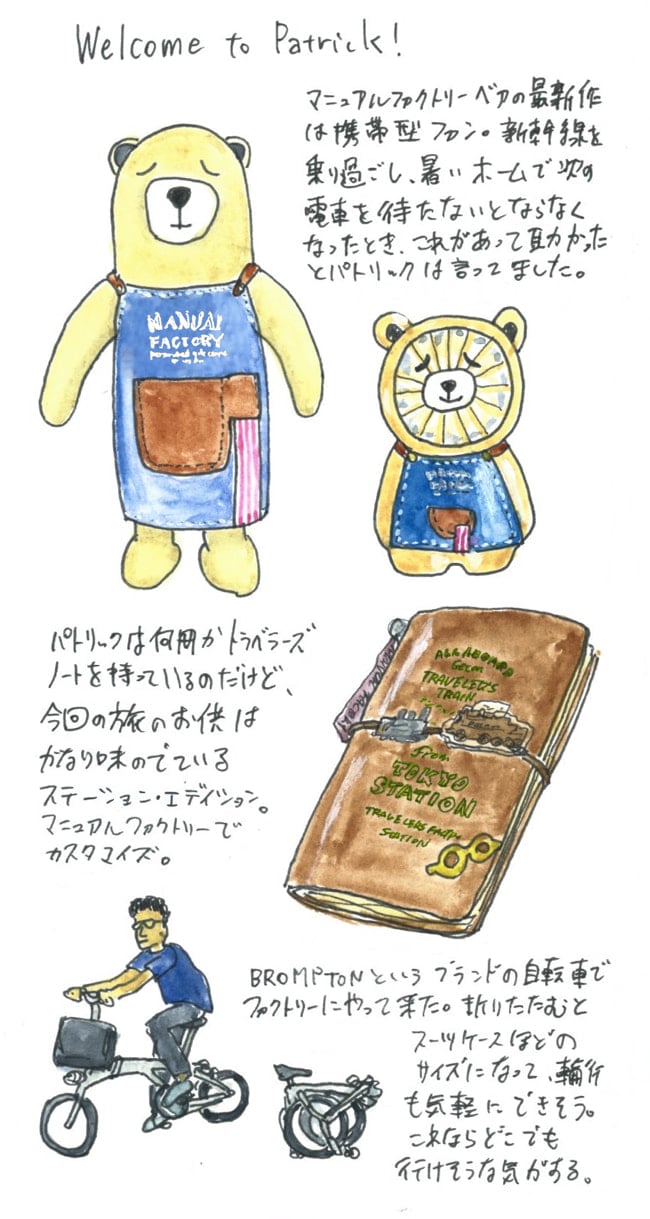 Welcome to Patrick!
マニュアルファクトリーベアの最新作
は携帯型ファン。新幹線を
乗り過ごし、暑いホームで次の
電車を待たないとならなく
なったとき、これがあって助かった
とパトリックは言ってました。
MANUAL
FACTORY
パトリックは何冊かトラベラーズ
ノートを持っているのだけど、
今回の旅のお供は
かなり味のでている
ステーション・エディション。
マニュアルファクトリーで
カスタマイズ。
ALL ABOARD
TRAVELER'S
TRAIN
from
TOKYO
STATION
TRAVELER'S
STATION
BROMPTONというブランドの自転車で
ファクトリーにやって来た。折りたたむと
スーツケースほどの
サイズになって、輪行
も気軽にできそう。
これならどこでも
行けそうな気がする。